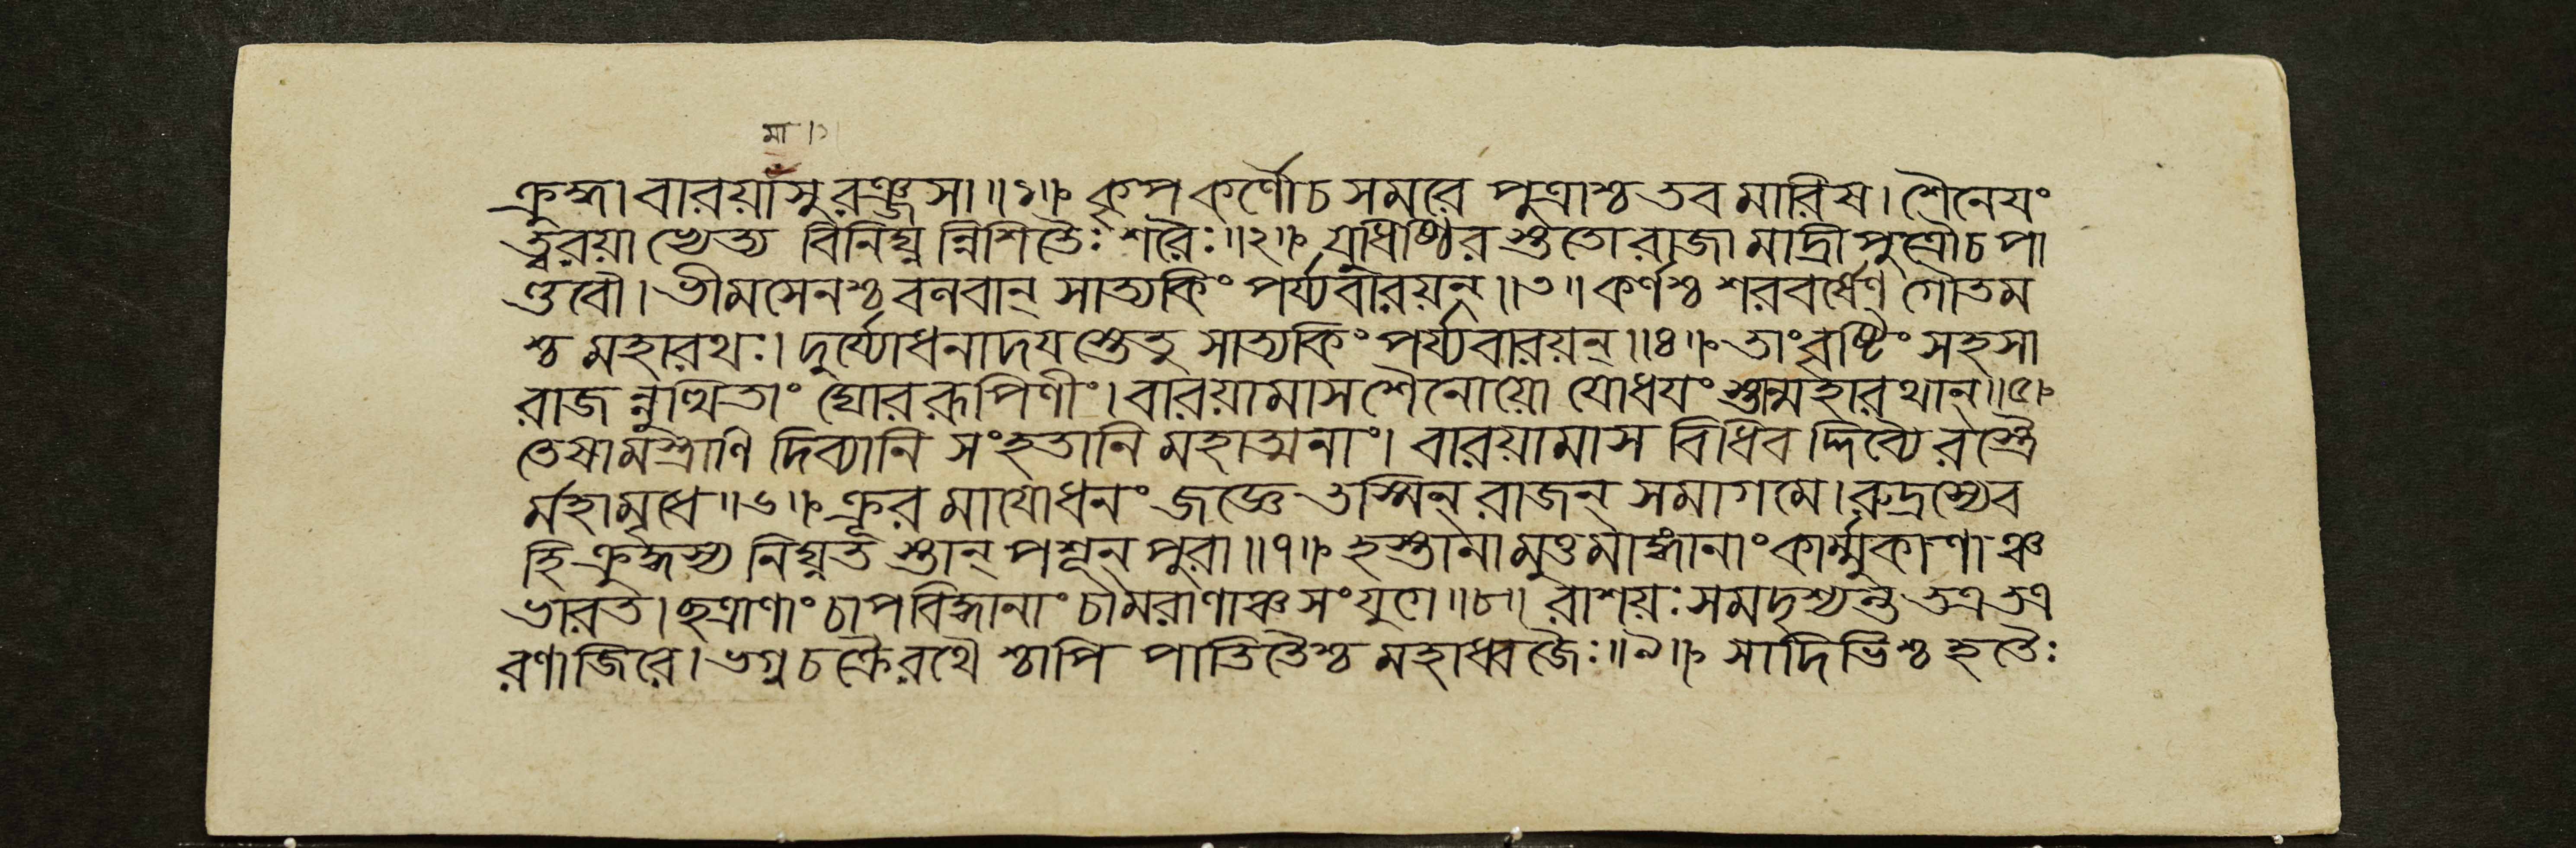 মা ।১।
ক্রুদ্ধা বারয়াঁসুরঞ্জসা॥১॥ কৃপকর্ণৌচ সমরে পুত্রাশ্চ তব মারিষ। শৈনেযং
ত্বরয়া ভ্যেত্য বিনিঘ্ন ন্নিশিতৈঃ শরৈঃ॥২॥ যুধিষ্ঠির স্তুতো রাজা মাদ্রীপুত্রৌচ পা
ণ্ডবৌ। ভীমসেনশ্চ বলবান্ সাত্যকিং পর্য্যবারয়ন্॥৩॥ কর্ণশ্চ শরবর্ষেণ গৌতম
শ্চ মহারথঃ। দুর্য্যোধনাদযস্তেতু সাত্যকিং পর্য্যবারয়ন্॥৪॥ তাং বৃষ্টিং সহসা
রাজ ন্নুত্থিতাং ঘোররূপিণীং। বারয়ামাস শৈনোয়ো যোধযং স্তান্মহারথান্॥৫॥
তেষামস্ত্রাণি দিব্যানি সংহতানি মহাত্মনাং। বারয়ামাস বিধিব দ্দিব্যৈ রস্ত্রৈ
র্মহামৃধে॥৬॥ ক্রূর মাযোধনং জজ্ঞে তস্মিন্ রাজন্ সমাগমে। রুদ্রস্যেব
হি ক্রুদ্ধস্য নিঘ্নত স্তান্ পশূন্ পুরা॥৭॥ হস্তানামুত্তমাঙ্গানাং কার্ম্মুকাণাঞ্চ
ভারত। ছত্রাণাং চাপবিদ্ধানাং চামরাণাঞ্চ সংযুগে॥৮॥ রাশয়ঃ সমদৃশ্যন্ত তত্র তত্র
রণাজিরে। ভগ্নচক্রৈরথৈ শ্চাপি পাতিতৈশ্চ মহাধ্বজৈঃ॥৯॥ সাদিভিশ্চ হতৈঃ